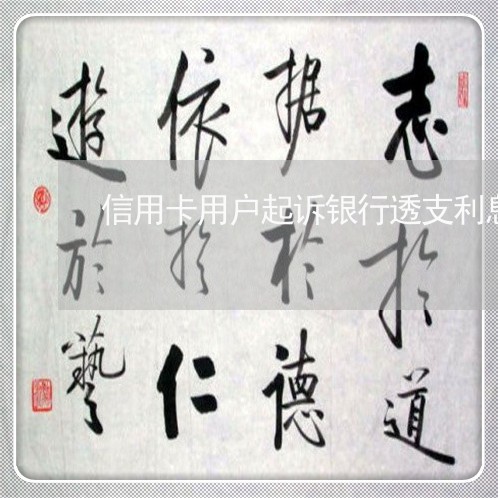 志於道
据於德
依於仁
遊於藝
信用卡用户起诉银行透支利息